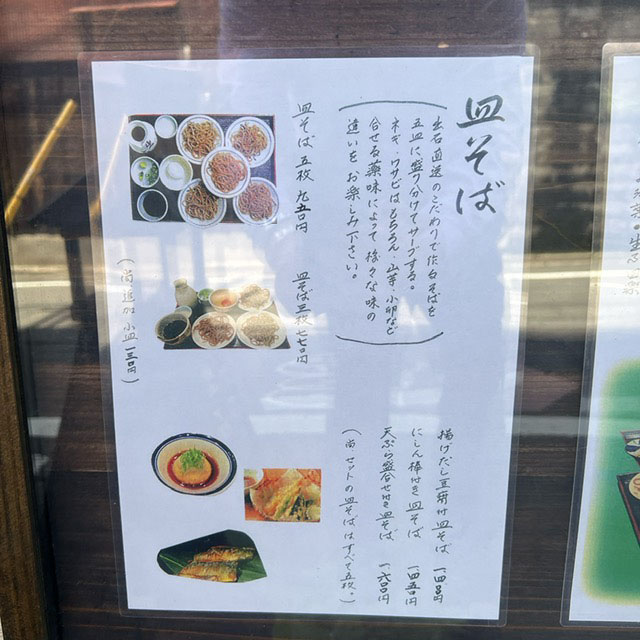 皿そば
出石直送のこだわり手作白そばを
五皿に盛り分けてサーブする。
ネギ、ワサビはもちろん、山芋、小卵など
合せる薬味によって様々な味の
違いをお楽しみ下さい。
皿そば 五枚 九五〇円
皿そば 三枚 七七〇円
(尚追加小皿一三〇円)
揚げだし豆腐付皿そば 一四〇〇円
にしん棒付き皿そば 一四五〇円
天ぷら盛合せ付き皿そば 一六〇〇円
(尚セットの皿そばはすべて五枚。)